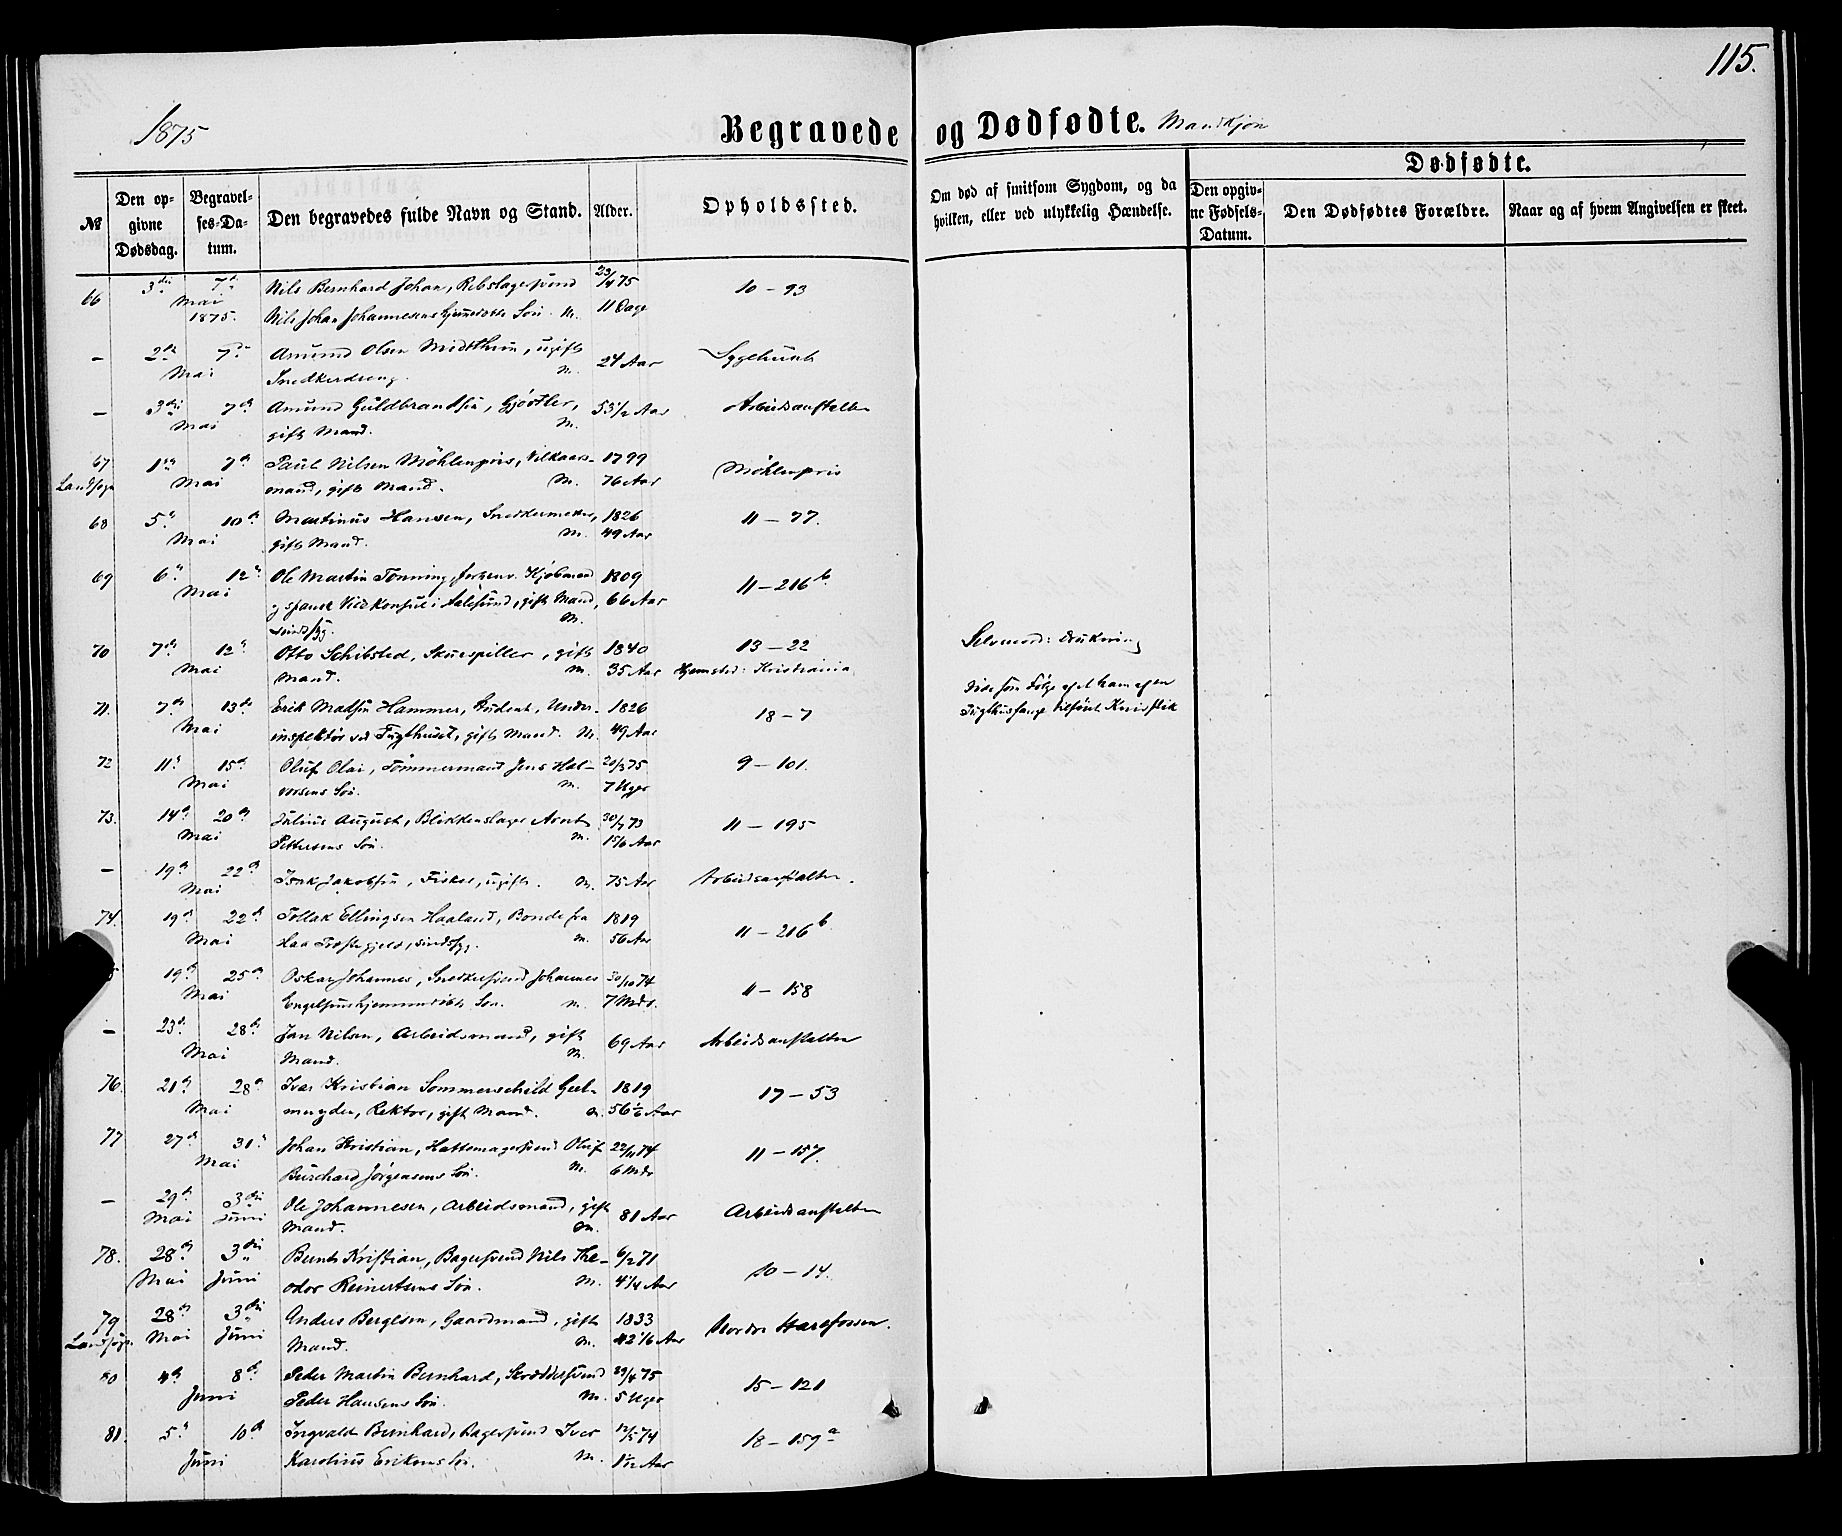 115.
1875
Begravede og Dødfødte. Mandkjøn
Dødfødte.
№
Den opgivne Dødsdag.
Begravelses-Datum.
Den begravedes fulde Navn og Stand.
Alder.
Opholdssted.
Om død af smitsom Sygdom, og da hvilken, eller ved ulykkelig Hændelse.
Den opgivne Fødsels-Datum.
Den Dødfødtes Forældre.
Naar og af hvem Angivelsen er skeet.
66 3die 7de Nils Bernhard Johan, Rebslagersvend 23/4 75 10 – 93
Mai 1875. Nils Johan Johannesens Søn. M. 11 Dage
– 2den 7de Amund Olsen Midtthun, ugift 24 Aar Sygehuset
Mai Snedkerdreng. M.
– 3die 7de Amund Guldbrandsen, Gjørtler, 53 1/2 Aar Arbeidsanstalten
Mai gift Mand. M.
67 1ste 7de Paul Nilsen Möhlenpris, Vilkaars- 1799 Möhlenpris
Landsogn Mai mand, gift Mand. M. 76 Aar
68 5te 10de Martinus Hansen, Snedkermester, 1826 11 – 77.
Mai gift Mand. M. 49 Aar
69 6te 12te Ole Martin Tonning, Kjøbmand 1809 11 – 216b
Mai og spansk Vicekonsul i Aalesund, gift Mand, 66 Aar
sindssyg. M.
70 7de 12te Otto Schibsted, Skuespiller, gift 1840 13 – 22 Selvmord: Drukning
Mai Mand. M. 35 Aar Hjemsted: Kristiania
71. 7de 13de Erik Madsen Hammer, Student, Under- 1826 18 – 7 Døde som Følge af et ham af en
Mai inspektør ved Tugthuset, gift Mand. M. 49 Aar Tugthusfange tilføiet Knivstik
72 11te 15de Oluf Olai, Tömmermand Jens Hal- 20/3 75 9 – 101.
Mai vorsens Søn. M. 7 Uger
73. 14de 20de Julius August, Blikkenslager Arnt 30/7 73 11 – 195
Mai Pettersens Søn. M. 1 5/6 Aar
– 19de 22de Isak Jakobsen, Fisker, ugift. M. 75 Aar Arbeidsanstalten.
Mai
74. 19de 22de Tollak Ellingsen Haaland, Bonde fra 1819 11 – 216b
Mai Haa Præstegjeld, sindssyg. M. 56 Aar
19de 25de Oskar Johannes, Snedkersvend Johannes 30/10 74 11 – 158
Mai Engelsens hjemmedøbt Søn. M. 7 Mdr.
– 23de 28de Jan Nilsen, Arbeidsmand, gift 69 Aar Arbeidsanstalten
Mai Mand. M.
76. 21de 28de Ivar Kristian Sommerschild Geel- 1819 17 – 53
Mai muyden, Rektor, gift Mand. M. 56 1/6 Aar
77 27de 31te Johan Kristian, Hattemagersvend Oluf 22/11 74 11 – 157.
Mai Burchard Jørgensens Søn. M. 6 Mdr
– 29de 3die Ole Johannesen, Arbeidsmand, gift 81 Aar Arbeidsanstalten
Mai Juni Mand. M.
78. 28de 3die Bernt Kristian, Bagersvend Nils The- 6/2 71 10 – 14.
Mai Juni odor Reinertsens Søn. M. 4 1/4 Aar
79 28de 3die Anders Bergesen, Gaardmand, gift 1833 Nordre
Landsogn Mai Juni Mand. M. 42 1/6 Aar
80 4de 8de Peder Martin Bernhard, Skræddersvend 29/4 75 15 – 121
Juni Peder Hansens Søn. M. 5 Uger
81. 5te 10de Ingvald Bernhard, Bagersvend Iver 12/5 74 18 – 159a
Juni Karelius Eriksens Søn. M. 1 1/12 Aar